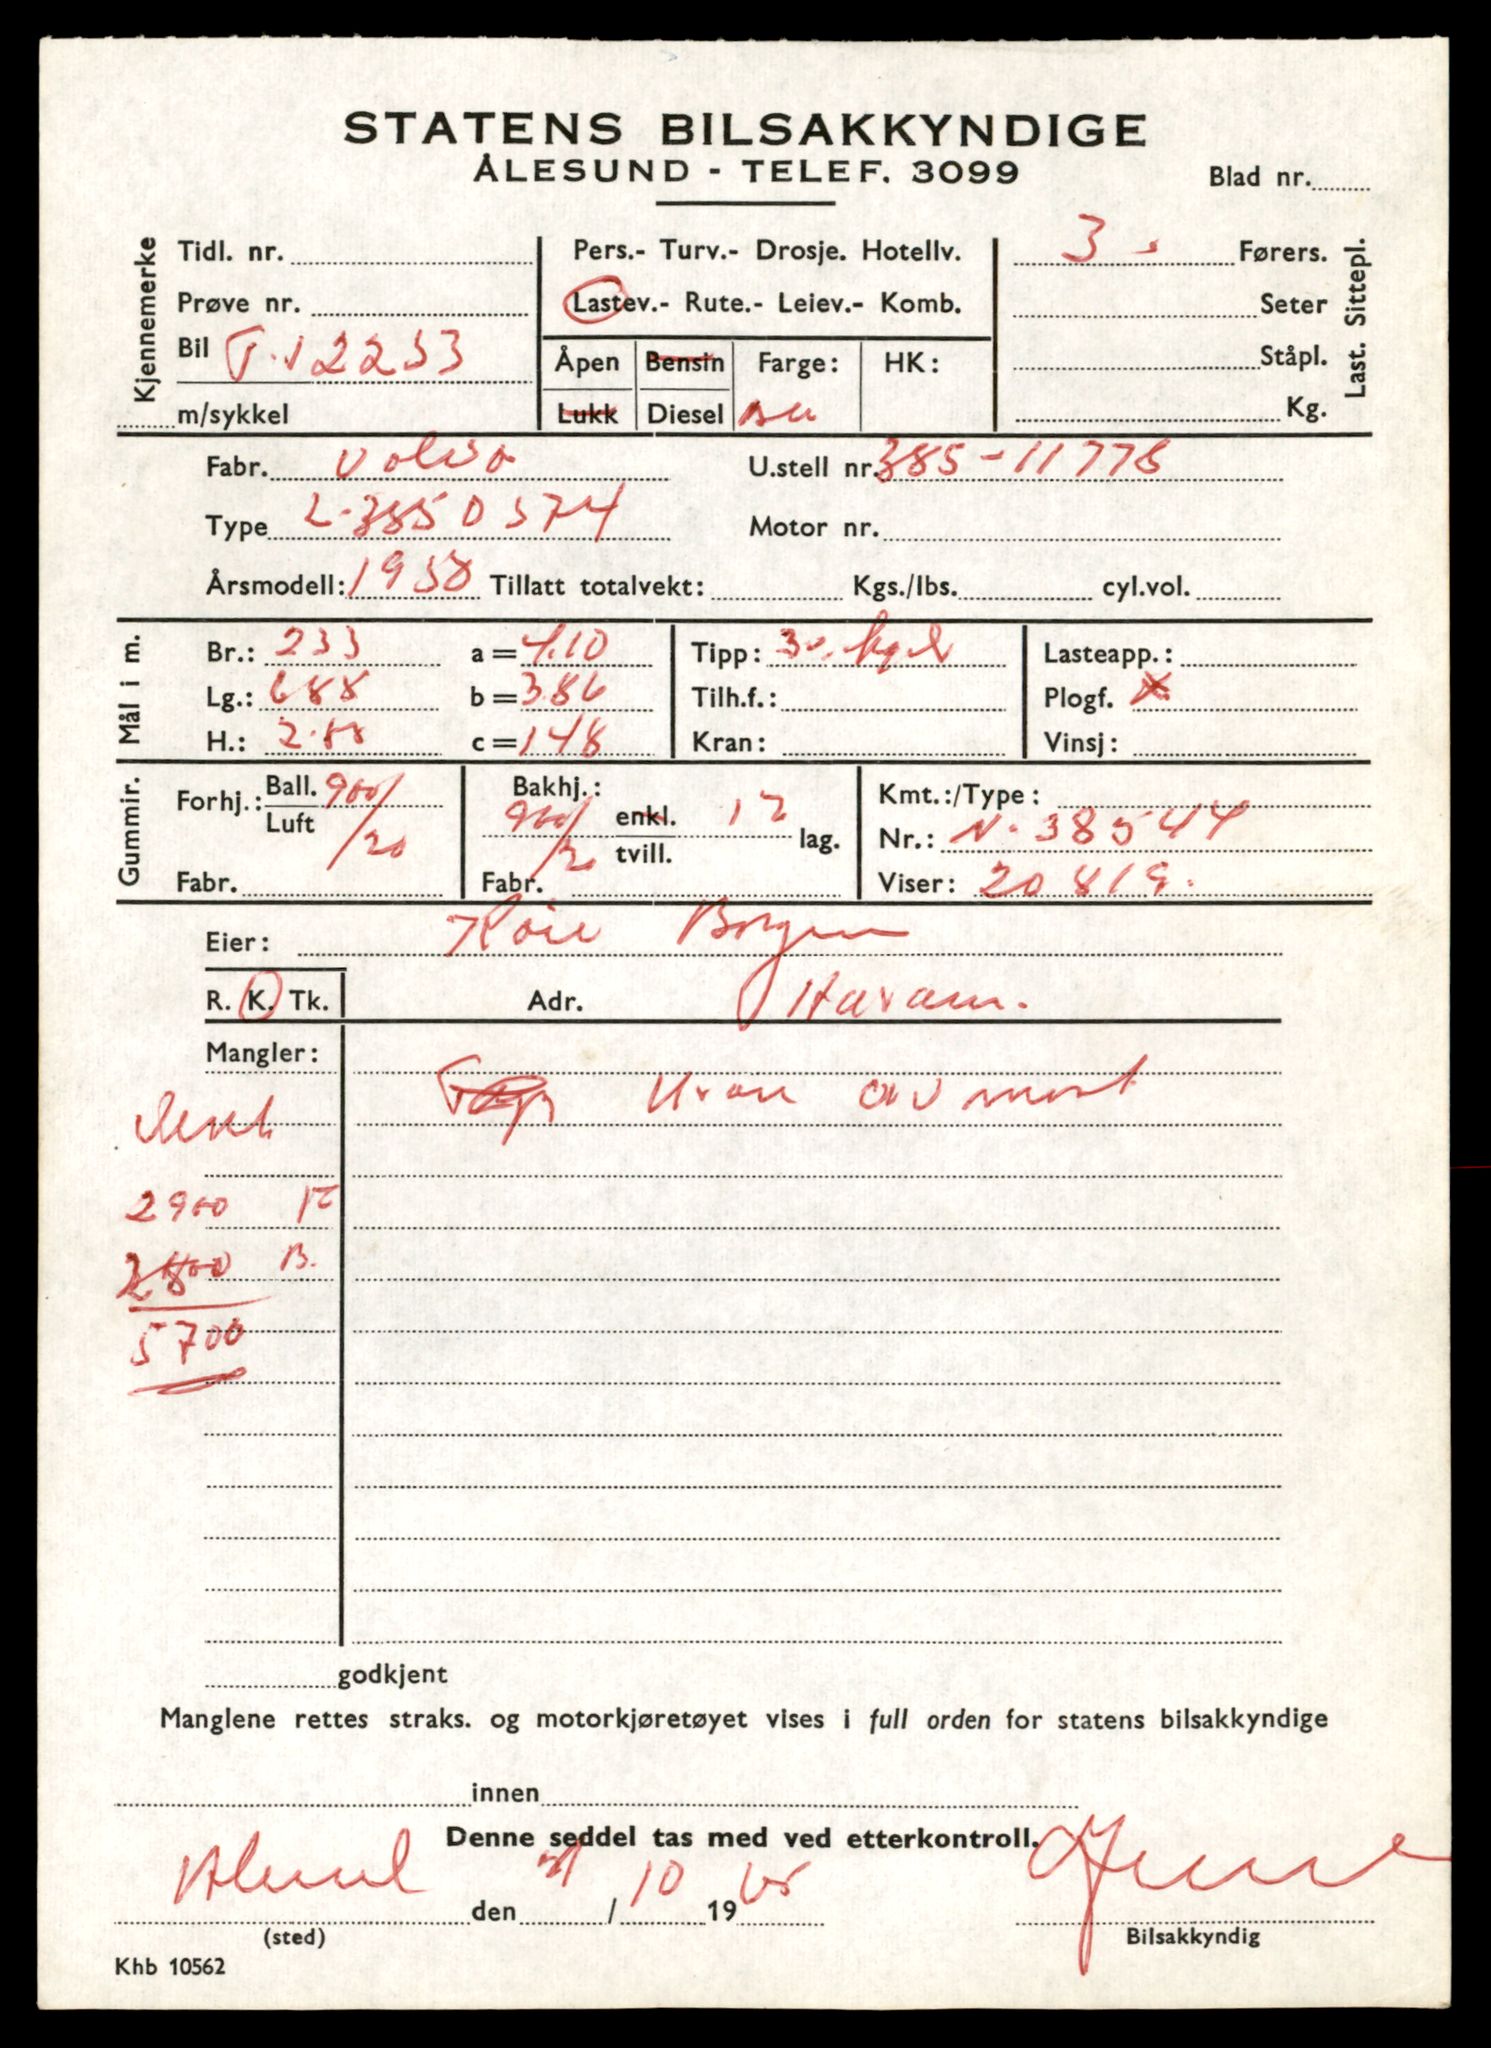 STATENS BILSAKKYNDIGE
ÅLESUND - TELEF. 3099
Blad nr.
Kjennemerke
Tidl. nr.
Prøve nr.
Bil T-12253
m/sykkel
Pers.- Turv.- Drosje. Hotellv.
Lastev.- Rute.- Leiev.- Komb.
Åpen Bensin Farge: HK:
Lukk Diesel
3 Førers.
Seter
Ståpl.
Kg.
Last. Sittepl.
Fabr. Volvo U.stell nr. 385-11778
Type L-3850 574 Motor nr.
Årsmodell: 1958 Tillatt totalvekt: Kgs./lbs. cyl.vol.
Mål i m.
Br.: 233 a = 4.10 Tipp: Lasteapp.:
Lg.: 688 b = 3.86 Tilh.f.: Plogf. X
H.: 2.88 c = 148 Kran: Vinsj:
Gummir.
Forhj.: Ball. 900/20
Luft
Fabr.
Bakhj.:
900/20 enkl. 12 lag.
tvill.
Fabr.
Kmt.:/Type:
Nr.: N-38544
Viser: 20819.
Eier: Kåre
R. K. Tk. Adr. Haram.
Mangler: Kran avmont
2900 F
2800 B.
5700
godkjent
Manglene rettes straks. og motorkjøretøyet vises i full orden for statens bilsakkyndige
innen
Denne seddel tas med ved etterkontroll.
Ålesund den / 10 19 65
(sted) Bilsakkyndig
Khb 10562